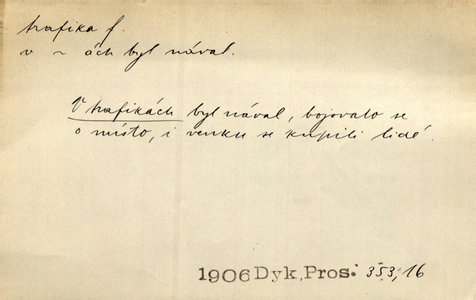 trafika f.
v ~ ách byl nával.
V trafikách byl nával, bojovalo se
o místo, i venku se kupili lidé.
1906 Dyk, Pros. 353, 16